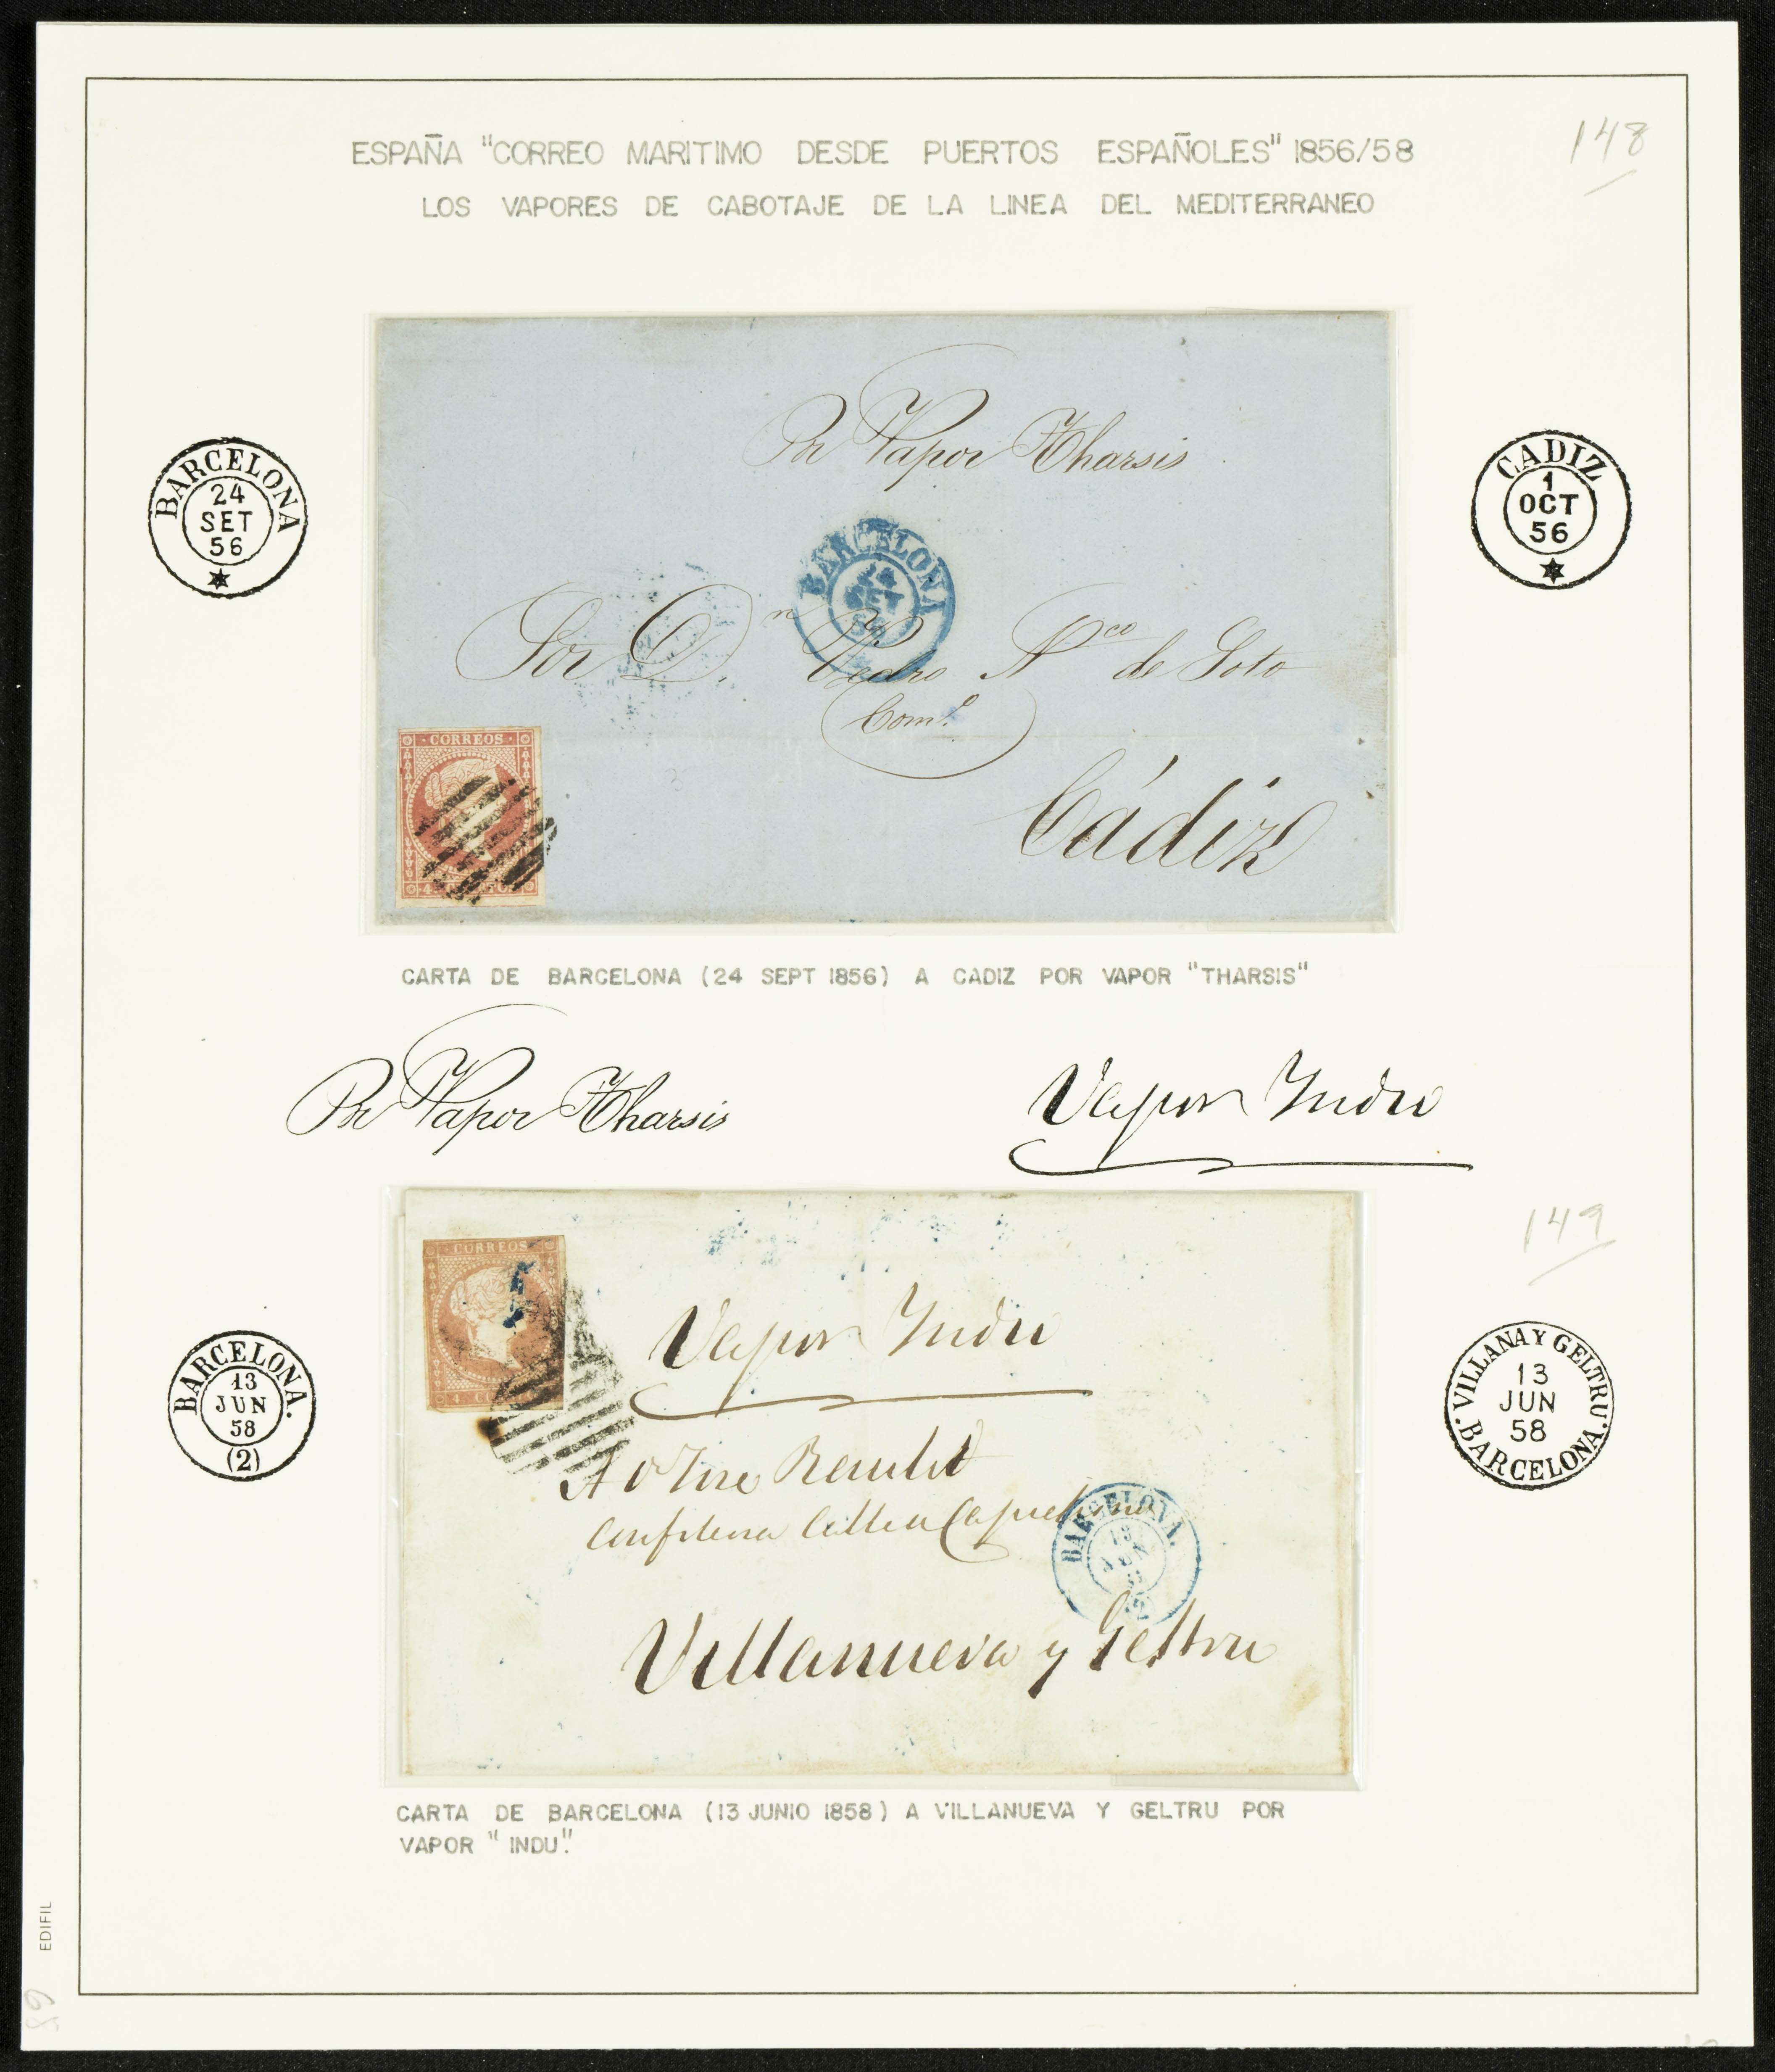 ESPAÑA "CORREO MARITIMO DESDE PUERTOS ESPAÑOLES" 1856/58
148
LOS VAPORES DE CABOTAJE DE LA LINEA DEL MEDITERRANEO
BARCELONA
24
SET
56
Por Vapor Tharsis
BARCELONA
24
SET
56
CADIZ
1
OCT
56
Sor Dn. Pedro Nco de Soto
Como
Cádiz
CORREOS
CARTA DE BARCELONA (24 SEPT 1856) A CADIZ POR VAPOR "THARSIS"
Por Vapor Tharsis
Vapor Indio
149
CORREOS
Vapor Indio
BARCELONA.
13
JUN
58
(2)
VILLANA Y GELTRU.
13
JUN
58
BARCELONA.
BARCELONA.
13
Villanueva y Geltru
CARTA DE BARCELONA (13 JUNIO 1858) A VILLANUEVA Y GELTRU POR
VAPOR "INDU".
EDIFIL